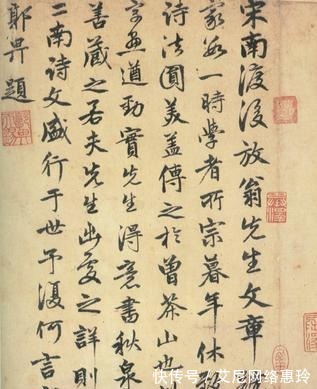 宋南渡后放翁先生文章
家為一時學者所宗暮年休
詩法圓美蓋傳之於曾茶山也
字畫遒勁實先生得意書秋泉
善藏之若夫先生出處之詳則
二南詩文盛行于世予復何言
郭畀題
快传号/艾尼网络惠玲